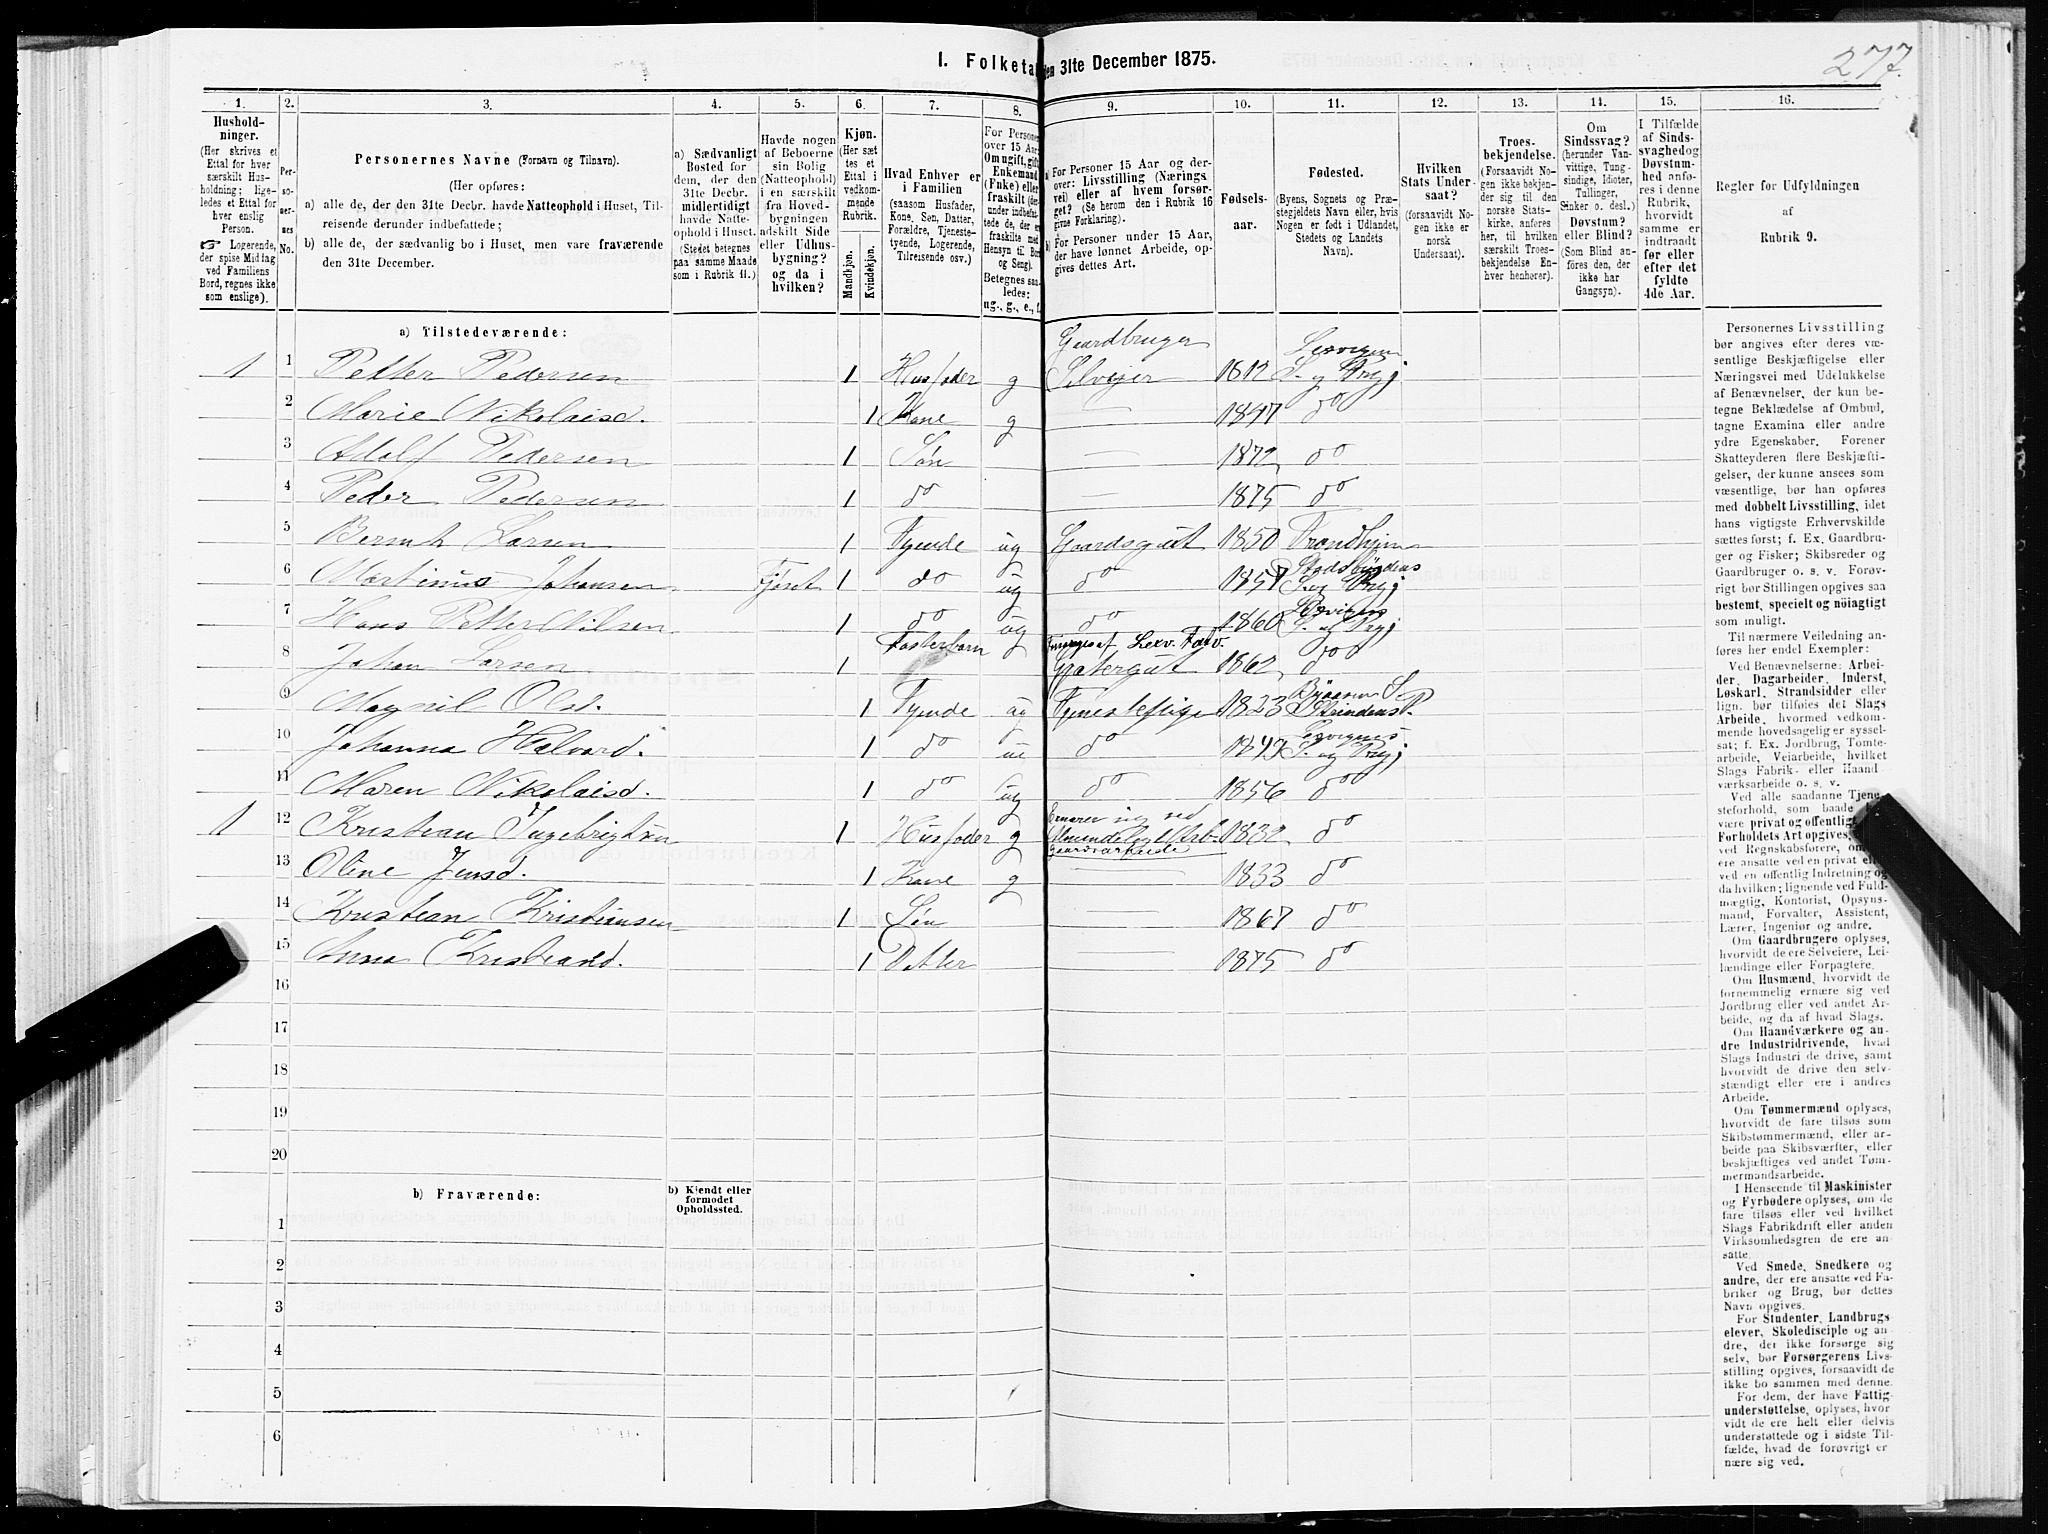 277.
1. Folketal den 31te December 1875.
1. 2. 3. 4. 5. 6. 7. 8. 9. 10. 11. 12. 13. 14. 15. 16.
Hushold-
ninger.
(Her skrives et
Ettal for hver
særskilt Hus-
holdning; lige-
ledes et Ettal for
hver enslig
Person.
☞ Logerende,
der spise Middag
ved Familiens
Bord, regnes ikke
som enslige).
Per-
so-
ner-
nes
No.
Personernes Navne (Fornavn og Tilnavn).
(Her opføres:
a) alle de, der den 31te Decbr. havde Natteophold i Huset, Til-
reisende derunder indbefattede;
b) alle de, der sædvanlig bo i Huset, men vare fraværende
den 31te December.
a) Sædvanligt
Bosted for
dem, der den
31te Decbr.
midlertidigt
havde Natte-
ophold i Huset.
(Stedet betegnes
paa samme Maade
som i Rubrik 11.)
Havde nogen
af Beboerne
sin Bolig
(Natteophold)
i en særskilt
fra Hoved-
bygningen
adskilt Side
eller Udhus-
bygning?
og da i
hvilken?
Kjøn.
(Her sæt-
tes et
Ettal i
vedkom-
mende
Rubrik.
Mandkjøn.
Kvindekjøn.
Hvad Enhver er
i Familien
(saasom Husfader,
Kone, Søn, Datter,
Forældre, Tjeneste-
tyende, Logerende,
Tilreisende osv.)
For Personer
over 15 Aar:
Om ugift, gift,
Enkemand
(Enke) eller
fraskilt (der-
under indbefat-
tede de, der ere
fraskilte med
Hensyn til Bord
og Seng).
Betegnes saa-
ledes:
ug., g., e., f.
a For Personer 15 Aar og der-
over: Livsstilling (Nærings-
vei) eller af hvem forsør-
get? (Se herom den i Rubrik 16
givne Forklaring).
b For Personer under 15 Aar,
der have lønnet Arbeide, op-
gives dettes Art.
Fødsels-
aar.
Fødested.
(Byens, Sognets og Præ-
stegjeldets Navn eller, hvis
Nogen er født i Udlandet,
Stedets og Landets
Navn).
Hvilken
Stats Under-
saat?
(forsaavidt No-
gen ikke er
norsk
Undersaat).
Troes-
bekjendelse.
(Forsaavidt No-
gen ikke bekjen-
der sig til den
norske Stats-
kirke, anføres
her, til hvilken
særskilt Troes-
bekjendelse En-
hver henhører).
Om
Sindssvag?
(herunder Van-
vittige, Tung-
sindige, Idioter,
Tullinger,
Sinker o. desl.)
Døvstum?
eller Blind?
(Som Blind an-
føres den, der
ikke har
Gangsyn).
I Tilfælde
af Sinds-
svaghed og
Døvstum-
hed anfø-
res i denne
Rubrik,
hvorvidt
samme er
indtraadt
før eller
efter det
fyldte
4de Aar.
Regler for Udfyldningen
af
Rubrik 9.
a) Tilstedeværende:
1 1 Petter Pedersen 1 Husfader g Gaardbruger Selveier 1812 Lexvigens S. og Prgj
2 Marie Nikolaisd. 1 Kone g — 1847 do
3 Adolf Pedersen 1 Søn — 1872 do
4 Peder Pedersen 1 do — 1875 do
5 Bernt Larsen 1 Tyende ug Gaardsgut 1850 Trondhjem
6 Martinus Johansen Fjøset 1 do ug do 1857 Stadsbygdens S. og Prgj
7 Hans Petter Nilsen 1 do ug do 1860 Lexvigens S. og Prgj
8 Johan Larsen 1 Fosterbarn Lexv. Fatv. Gjætergut 1862 do
9 Magnil Olsd. 1 Tyende ug Tjenestepige 1823 Byaasens S. Strindens P.
10 Johanna Halvard. 1 do ug do 1843 Lexvigens S. og Prgj
11 Maren Nikolaisd. 1 do ug do 1856 do
1 12 Kristian Ingebrigtsen 1 Husfader g Ernærer sig ved Almindelig Arb. Gaardsarbeide 1832 do
13 Oline Jensd. 1 Kone g — 1833 do
14 Kristian Kristiansen 1 Søn — 1867 do
15 Anna Kristiansd. 1 Datter — 1875 do
16
17
18
19
20
b) Fraværende:
b) Kjendt eller
formodet
Opholdssted.
1
2
3
4
5
6
Personernes Livsstilling
bør angives efter deres væ-
sentlige Beskjæftigelse eller
Næringsvei med Udelukkelse
af Benævnelser, der kun be-
tegne Beklædelse af Ombud,
tagne Examina eller andre
ydre Egenskaber. Forener
Skatteyderen flere Beskjæfti-
gelser, der kunne ansees som
væsentlige, bør han opføres
med dobbelt Livsstilling, idet
hans vigtigste Erhvervskilde
sættes først; f. Ex. Gaardbru-
ger og Fisker; Skibsreder og
Gaardbruger o. s. v. Forøv-
rigt bør Stillingen opgives saa
bestemt, specielt og nøiagtigt
som muligt.
Til nærmere Veiledning an-
føres her endel Exempler:
Ved Benævnelserne: Arbei-
der, Dagarbeider, Inderst,
Løskarl, Strandsidder eller
lign. bør tilføies det Slags
Arbeide, hvormed vedkom-
mende hovedsagelig er syssel-
sat; f. Ex. Jordbrug, Tomte-
arbeide, Veiarbeide, hvilket
Slags Fabrik- eller Haand-
værksarbeide o. s. v.
Ved alle saadanne Tjene-
steforhold, som baade
være privat og offentlig
Forholdets Art opgives,
ved Regnskabsførere, om
ere ansatte ved en privat el-
ved en offentlig Indretning og
da hvilken; lignende ved Fuld-
mægtig, Kontorist, Opsyns-
mand, Forvalter, Assistent,
Lærer, Ingeniør og andre.
Om Gaardbrugere oplyses,
hvorvidt de ere Selveiere, Lei-
lændinge eller Forpagtere.
Om Husmænd, hvorvidt de
fornemmelig ernære sig ved
Jordbrug eller ved andet Ar-
beide, og da af hvad Slags.
Om Haandværkere og an-
dre Industridrivende, hvad
Slags Industri de drive, samt
hvorvidt de drive den selv-
stændigt eller ere i andres
Arbeide.
Om Tømmermænd oplyses,
hvorvidt de fare tilsøs som
Skibstømmermænd, eller ar-
beide paa Skibsværfter, eller
beskjæftiges ved andet Tøm-
mermandsarbeide.
I Henseende til Maskinister
og Fyrbødere oplyses, om de
fare tilsøs eller ved hvilket
Slags Fabrikdrift eller anden
Virksomhedsgren de ere an-
satte.
Ved Smede, Snedkere og
andre, der ere ansatte ved Fa-
briker og Brug, bør dettes
Navn opgives.
For Studenter, Landbrugs-
elever, Skoledisciple og an-
dre, der ikke forsørge sig
selv, bør Forsørgerens Livs-
stilling opgives, forsaavidt de
ikke bo sammen med denne.
For dem, der have Fattig-
understøttelse, oplyses, hvor-
vidt de ere helt eller delvis
understøttede og i sidste Til-
fælde, hvad de forøvrigt er-
nære sig ved.